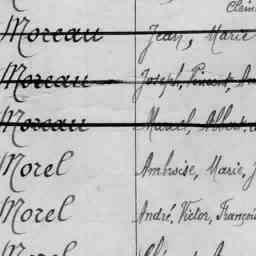 Moreau Jean, Marie
Moreau Joseph, Vincent,
Moreau Marcel, Albert,
Morel Ambroise, Marie, J
Morel André, Victor, François
Morel